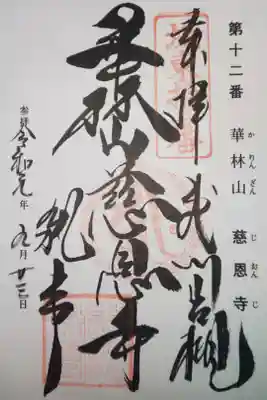 第十二番 華林山 慈恩寺
かりんざん じおんじ
奉拝 武州岩槻
華林山慈恩寺
執事
参拝 令和元年九月廿三日